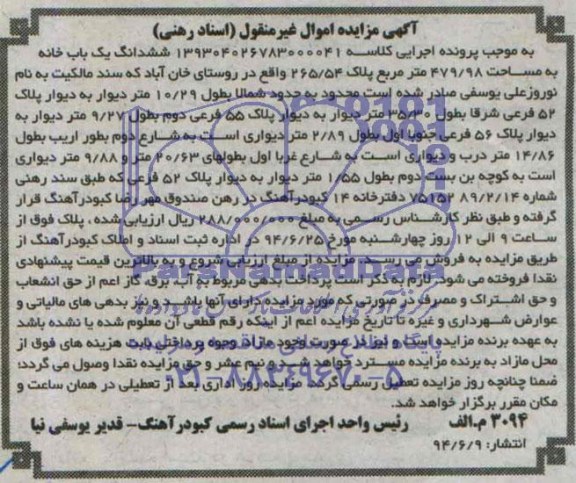 آگهی مزایده اموال غیرمنقول (اسناد رهنی)
به موجب پرونده اجرایی کلاسه ۱۳۹۳۰۴۰۲۶۷۸۳۰۰۰۰۴۱ ششدانگ یک باب خانه
به مساحت ۴۷۹/۹۸ متر مربع پلاک ۲۶۵/۵۴ واقع در روستای خان آباد که سند مالکیت به نام
نوروزعلی یوسفی صادر شده است محدود به حدود شمالا بطول ۱۰/۲۹ متر دیوار به دیوار پلاک
۵۲ فرعی شرقا بطول ۳۵/۳۰ متر دیوار به دیوار پلاک ۵۵ فرعی دوم بطول ۹/۲۷ متر دیوار به
دیوار پلاک ۵۶ فرعی جنوبا اول بطول ۲/۸۹ متر دیواری است به شارع دوم بطور اریب بطول
۱۴/۸۶ متر درب و دیواری است به شارع غربا اول بطولهای ۲۰/۶۳ متر و ۹/۸۸ متر دیواری
است به کوچه بن بست دوم بطول ۱/۵۵ متر دیوار به دیوار پلاک ۵۲ فرعی که طبق سند رهنی
شماره ۷۵۱۵۲ ۸۹/۲/۱۴ دفترخانه ۱۴ کبودرآهنگ در رهن صندوق مهر رضا کبودرآهنگ قرار
گرفته و طبق نظر کارشناس رسمی به مبلغ ۲۸۸/۰۰۰/۰۰۰ ریال ارزیابی شده، پلاک فوق از
ساعت ۹ الی ۱۲ روز چهارشنبه مورخ ۹۴/۶/۲۵ در اداره ثبت اسناد و املاک کبودرآهنگ از
طریق مزایده به فروش می رسد. مزایده از مبلغ ارزیابی شروع و به بالاترین قیمت پیشنهادی
نقدا فروخته می شود. لازم به ذکر است پرداخت بدهی مربوط به آب، برق، گاز اعم از حق انشعاب
و حق اشتراک و مصرف در صورتی که مورد مزایده دارای آنها باشد و نیز بدهی های مالیاتی و
عوارض شهرداری و غیره تا تاریخ مزایده اعم از اینکه رقم قطعی آن معلوم شده یا نشده باشد
به عهده برنده مزایده است و نیز در صورت وجود مازاد وجوه پرداختی بابت هزینه های فوق از
محل مازاد به برنده مزایده مسترد خواهد شد و نیم عشر و حق مزایده نقدا وصول می گردد؛
ضمنا چنانچه روز مزایده تعطیل رسمی گردد مزایده روز اداری بعد از تعطیلی در همان ساعت و
مکان مقرر برگزار خواهد شد.
۳۰۹۴ م.الف رئیس واحد اجرای اسناد رسمی کبودرآهنگ- قدیر یوسفی نیا
انتشار: ۹۴/۶/۹
ParsNamadData
۰۲۱-۸۸۳۴۹۶۷۰-۵